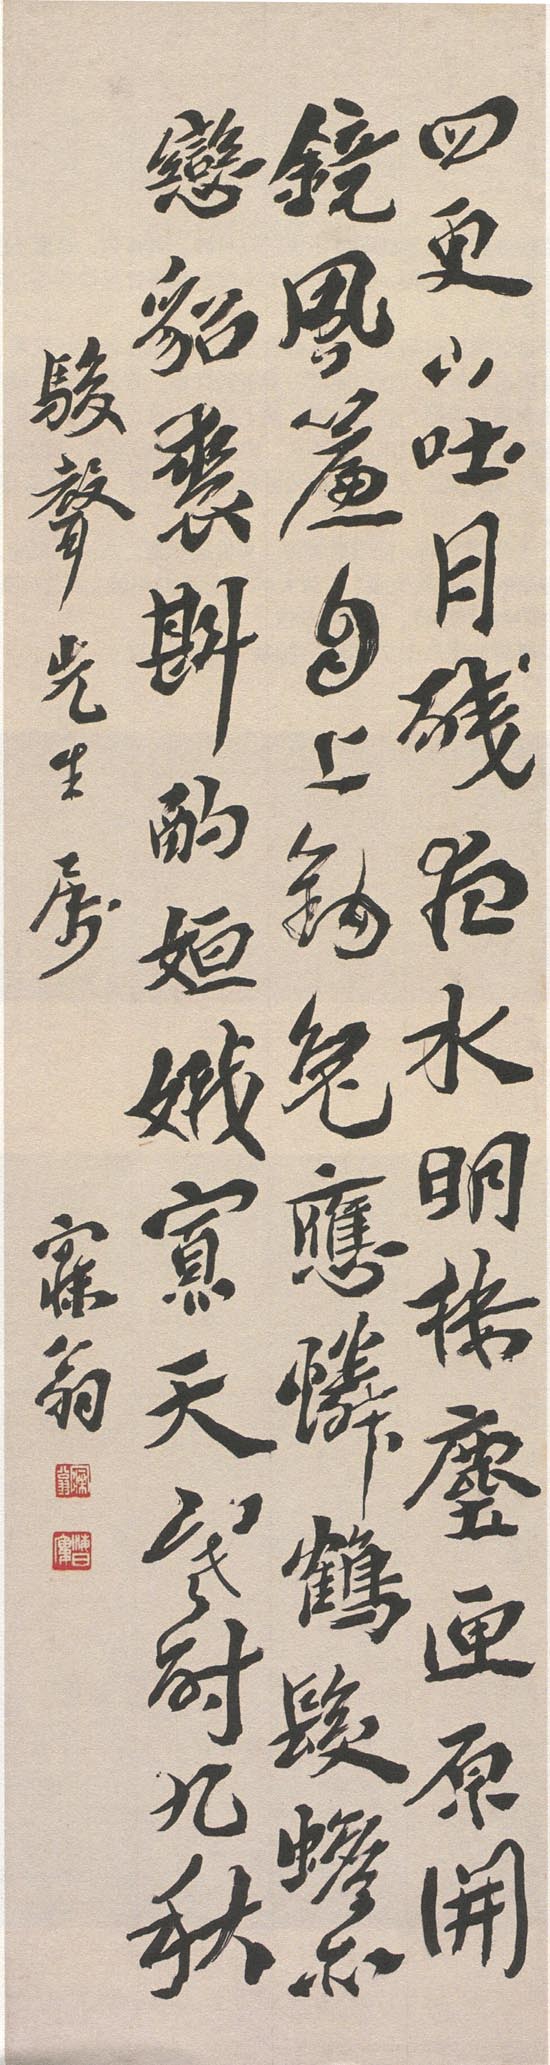 四更山吐月殘夜水明樓塵匣原開
鏡風簾自上鈎兔應憐鶴髮蟾亦
戀貂裘斟酌姮娥寡天寒耐九秋
駿聲先生屬 寐翁
寐翁
海日廔